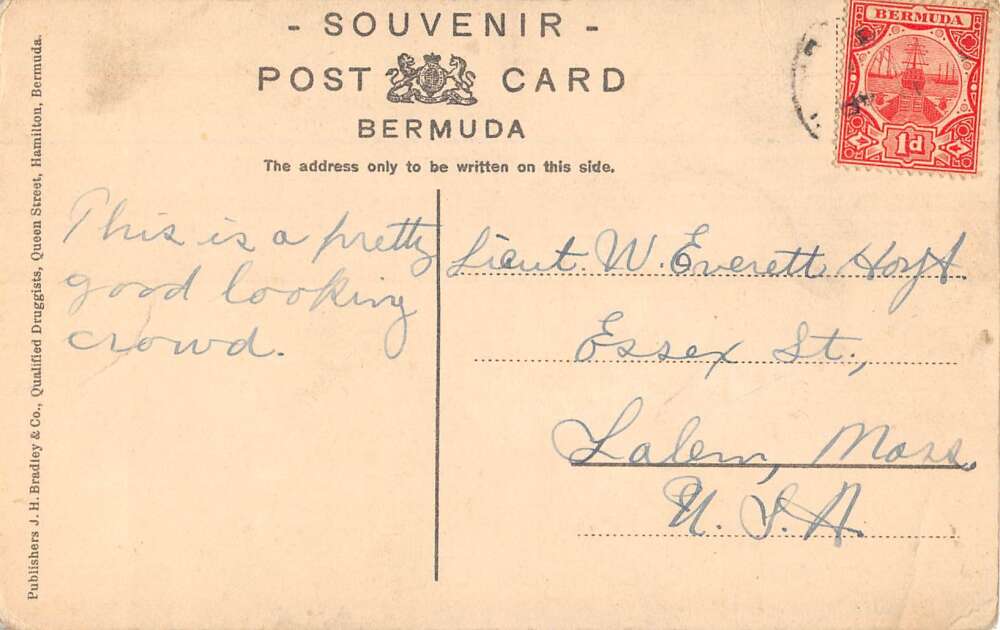 - SOUVENIR -
POST CARD
BERMUDA
The address only to be written on this side.
BERMUDA
1d
Publishers J. H. Bradley & Co., Qualified Druggists, Queen Street, Hamilton, Bermuda.
This is a pretty
good looking
crowd.
Lieut. W. Everett Hoyt.
Essex St.,
Salem, Mass.
U. S. A.